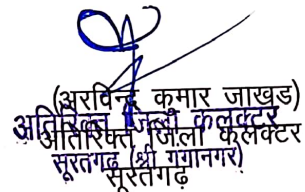 (अरविन्द कुमार जाखड)
अतिरिक्त जिला कलक्टर
अतिरिक्त जिला कलक्टर
सूरतगढ़ (श्री गंगानगर)
सूरतगढ